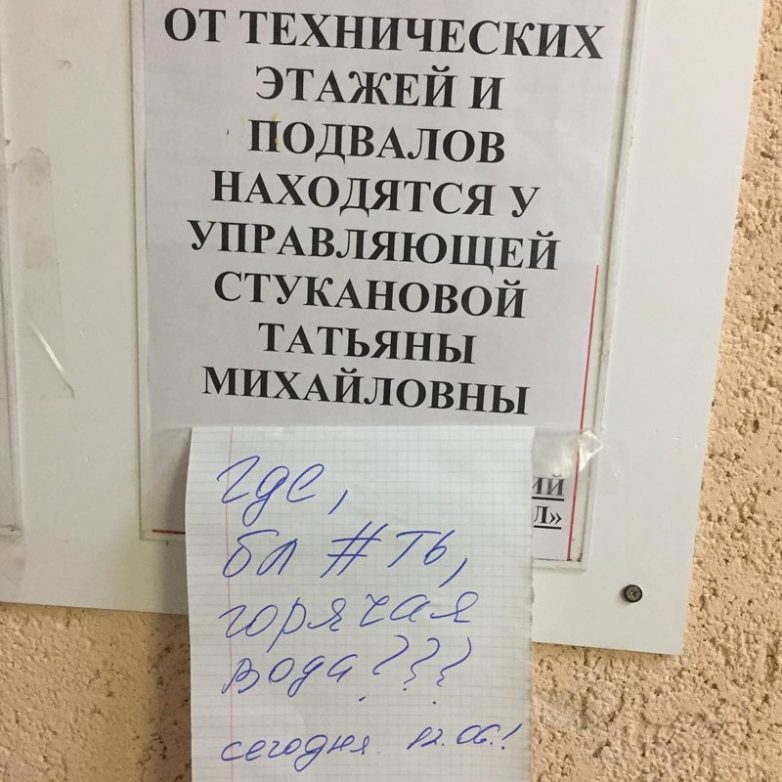 ОТ ТЕХНИЧЕСКИХ
ЭТАЖЕЙ И
ПОДВАЛОВ
НАХОДЯТСЯ У
УПРАВЛЯЮЩЕЙ
СТУКАНОВОЙ
ТАТЬЯНЫ
МИХАЙЛОВНЫ
ИЙ
Л»
где,
бл#ть,
горячая
вода???
сегодня 12.06!